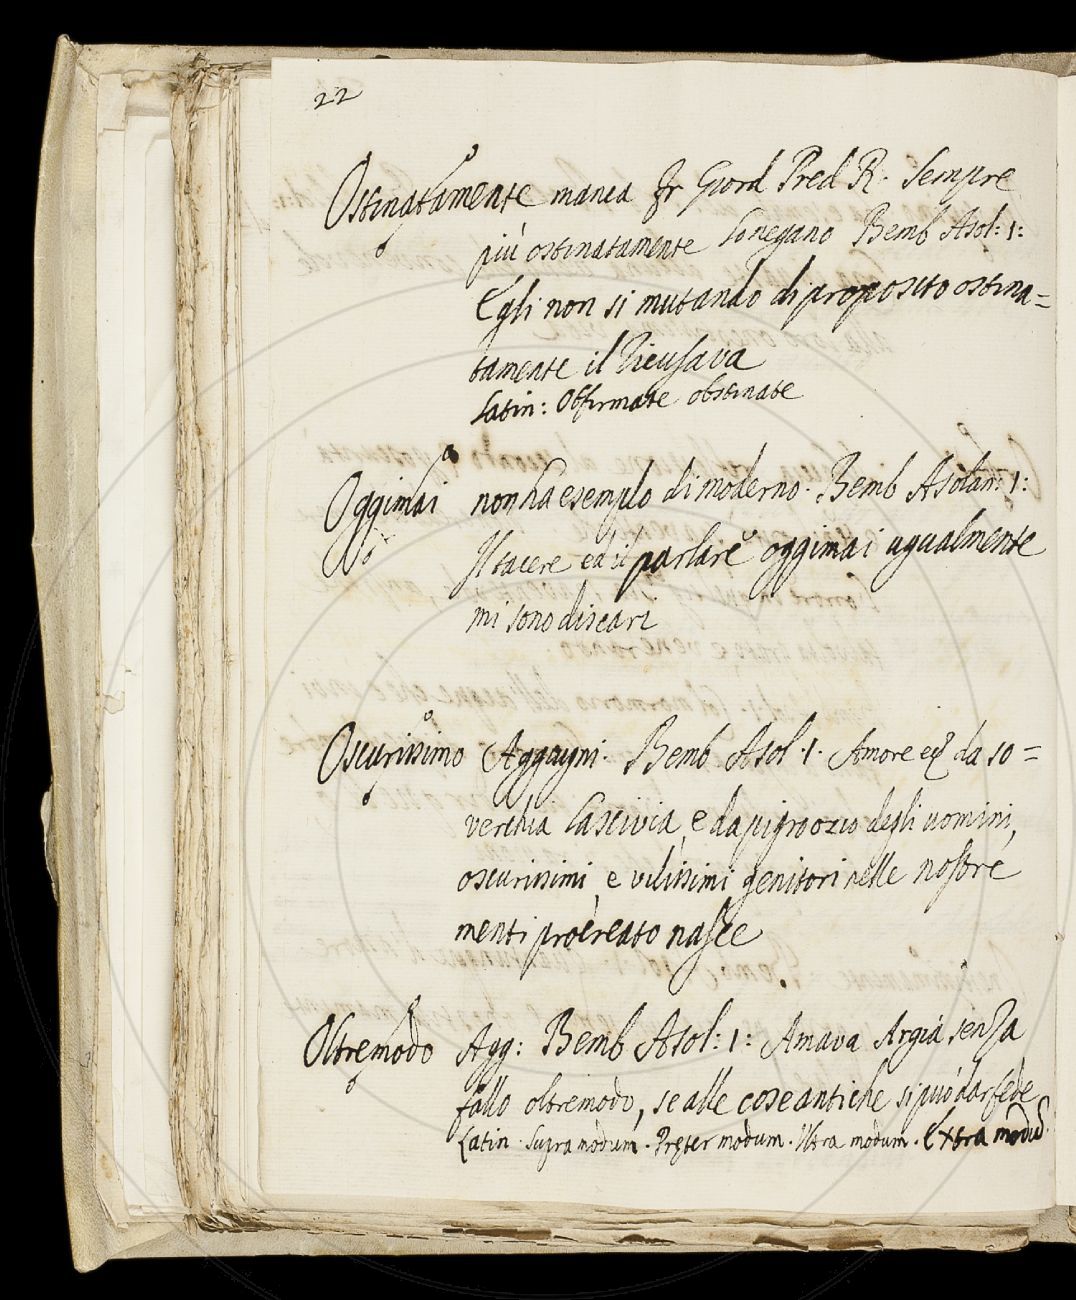 22
Ostinatamente manca Fr Giord Pred R. Sempre
più ostinatamente lo negano Bemb Asol: 1:
Egli non si mutando di proposito ostina=
tamente il ricusava
Latin: Offirmate obstinate
Oggimai non ha esemplo di moderno. Bemb Asolan: 1:
Il tacere ed il parlare oggimai ugualmente
mi sono discari
Oscurissimo Aggugni. Bemb Asol. 1. Amore da so=
verchia lascivia, e da pigro ozio degli uomini,
oscurissimi, e vilissimi genitori nelle nostre
menti procreato nasce
Oltremodo Agg: Bemb Asol: 1: Amava Argia senza
fallo oltremodo, se alle cose antiche si può dar fede
Latin. Supra modum. Pręter modum. Ultra modum. Extra modũ.